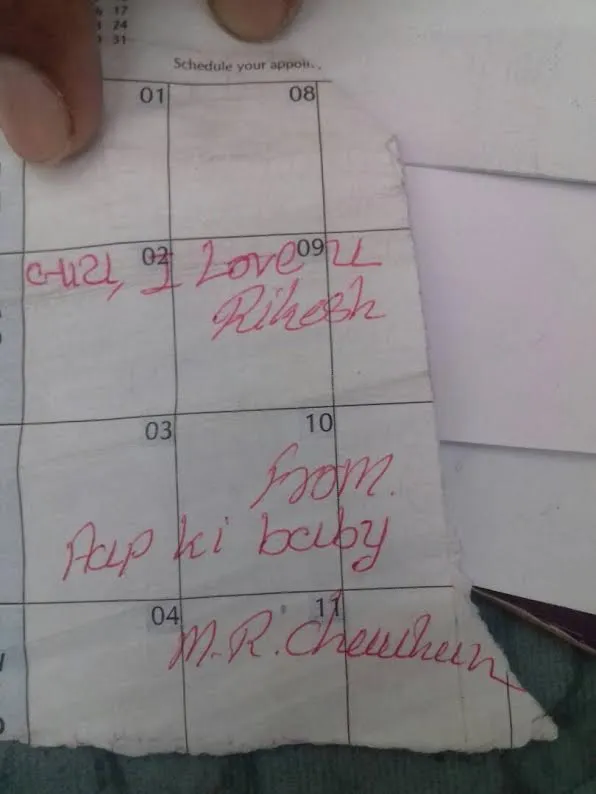 17
24
31
Schedule your appoi..
01 08
02 09
I Love U
Rikesh
03 10
from.
Aap ki baby
04 11
M.R. Chauhan